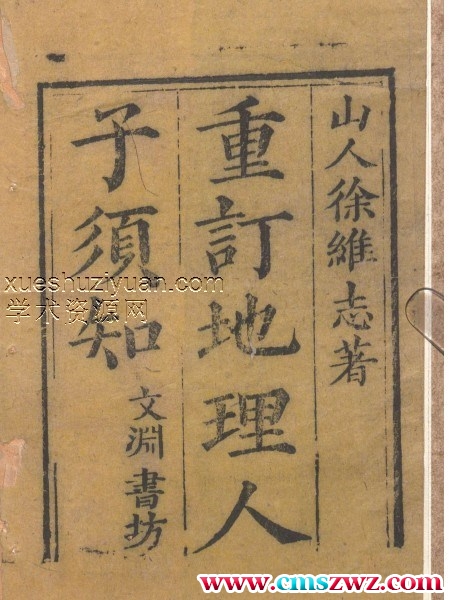 山人徐維志著
重訂地理人
子須知
文淵書坊
xueshuziyuan.com
学术资源网
www.cmszwz.com